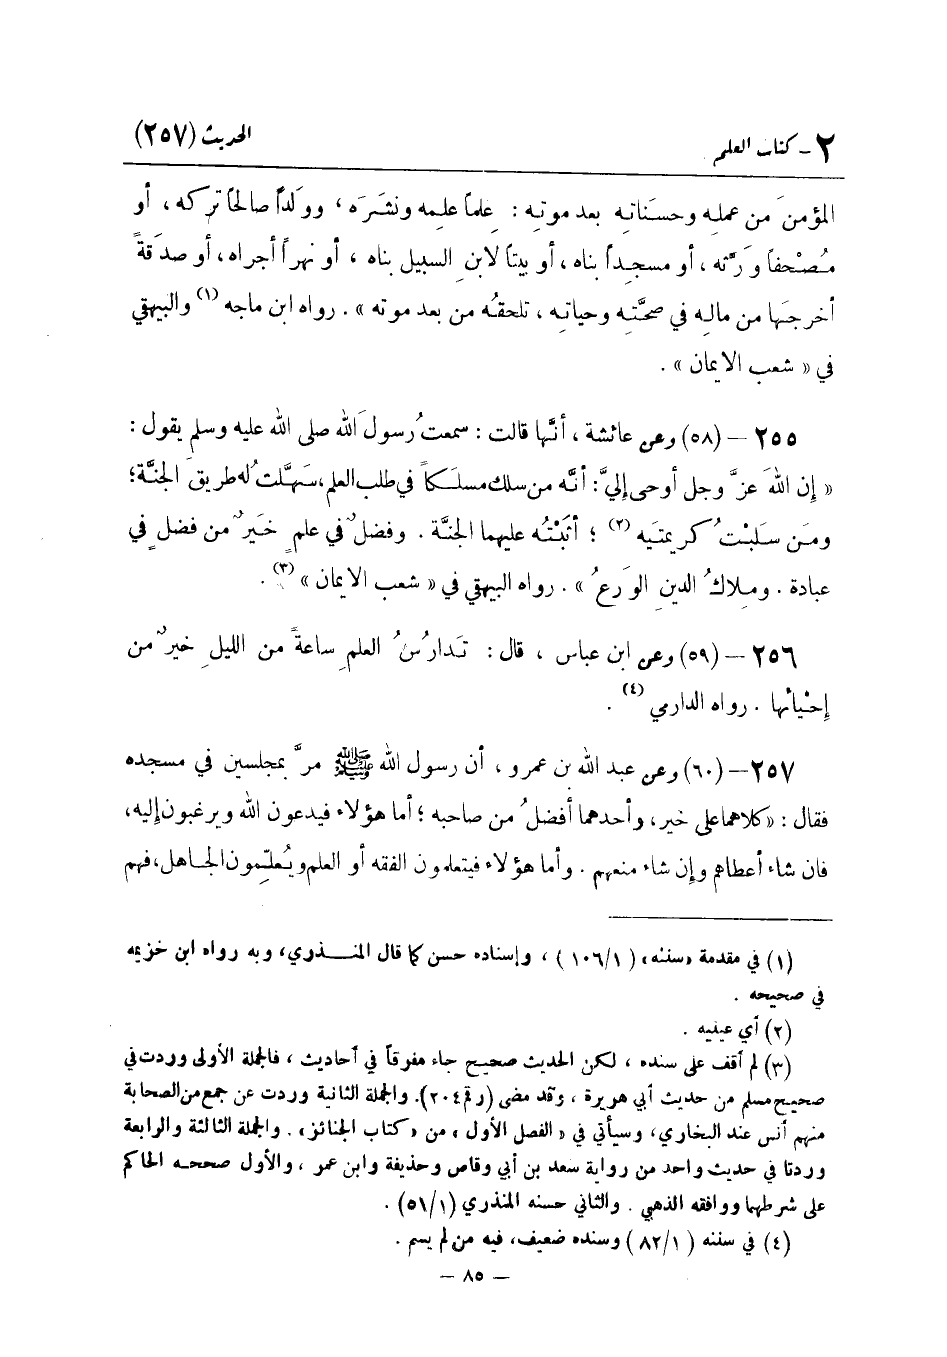 ٢ - كتاب العلم
الحديث (٢٥٧)
المؤمنَ من عملِهِ وحسَناتِهِ بعد موتِهِ : عِلماً علِمه ونشَرَه ، وولَداً صالحاً تركه ، أو
مُصْحفاً ورَّثه ، أو مسجداً بناه ، أو بيتاً لابنِ السبيل بناه ، أو نهراً أجراه ، أو صدَقةً
أخرجَها من مالِه في صحَّتِه وحياتِه ، تلحقُه من بعد موته » . رواه ابن ماجه (١) والبيهقي
في « شعب الايمان » .
٢٥٥ – (٥٨) وعن عائشة ، أنَّها قالت : سمعتُ رسولَ الله صلى الله عليه وسلم يقول :
« إن اللهَ عزَّ وجل أوحى إليَّ : أنَّه من سلك مسلَكاً في طلب العلم ، سَهَّلتُ له طريقَ الجنَّة ؛
ومَن سلَبْتُ كريمتَيه (٢) ؛ أثبَتْه عليهما الجنَّة . وفضلٌ في علمٍ خَيرٌ من فضلٍ في
عبادة . ومِلاكُ الدينِ الورَعُ » . رواه البيهقي في « شعب الايمان » (٣) .
٢٥٦ – (٥٩) وعن ابن عباس ، قال : تَدارُسُ العلمِ ساعةً من الليلِ خيرٌ من
إحْيائها . رواه الدارمي (٤) .
٢٥٧ – (٦٠) وعن عبد الله بن عمرو ، أن رسول الله ﷺ مرَّ بمجلسين في مسجده
فقال : « كلاهما على خير ، وأحدهما أفضلُ من صاحبه ؛ أما هؤلاء فيدعون الله ويرغبون إليه ،
فان شاء أعطاهم وإن شاء منعهم . وأما هؤلاء فيتعلمون الفقه أو العلم ويُعلِّمون الجاهل ، فهم
(١) في مقدمة «سننه» (١/١٠٦) ، وإسناده حسن كما قال المنــذري ، وبه رواه ابن خزيمه
في صحيحه .
(٢) أي عينيه .
(٣) لم أقف على سنده ، لكن الحديث صحيح جاء مفرقاً في أحاديث ، فالجملة الأولى وردت في
صحيح مسلم من حديث أبي هريرة ، وقد مضى (رقم ٢٠٤). والجملة الثانية وردت عن جمع من الصحابة
منهم أنس عند البخاري ، وسيأتي في « الفصل الأول » من « كتاب الجنائز » . والجملة الثالثة والرابعة
وردتا في حديث واحد من رواية سعد بن أبي وقاص وحذيفة وابن عمر ، والأول صححه الحاكم
على شرطهما ووافقه الذهبي . والثاني حسنه المنذري (١/٥١) .
(٤) في سننه (١/٨٢) وسنده ضعيف ، فيه من لم يسم .
— ٨٥ —